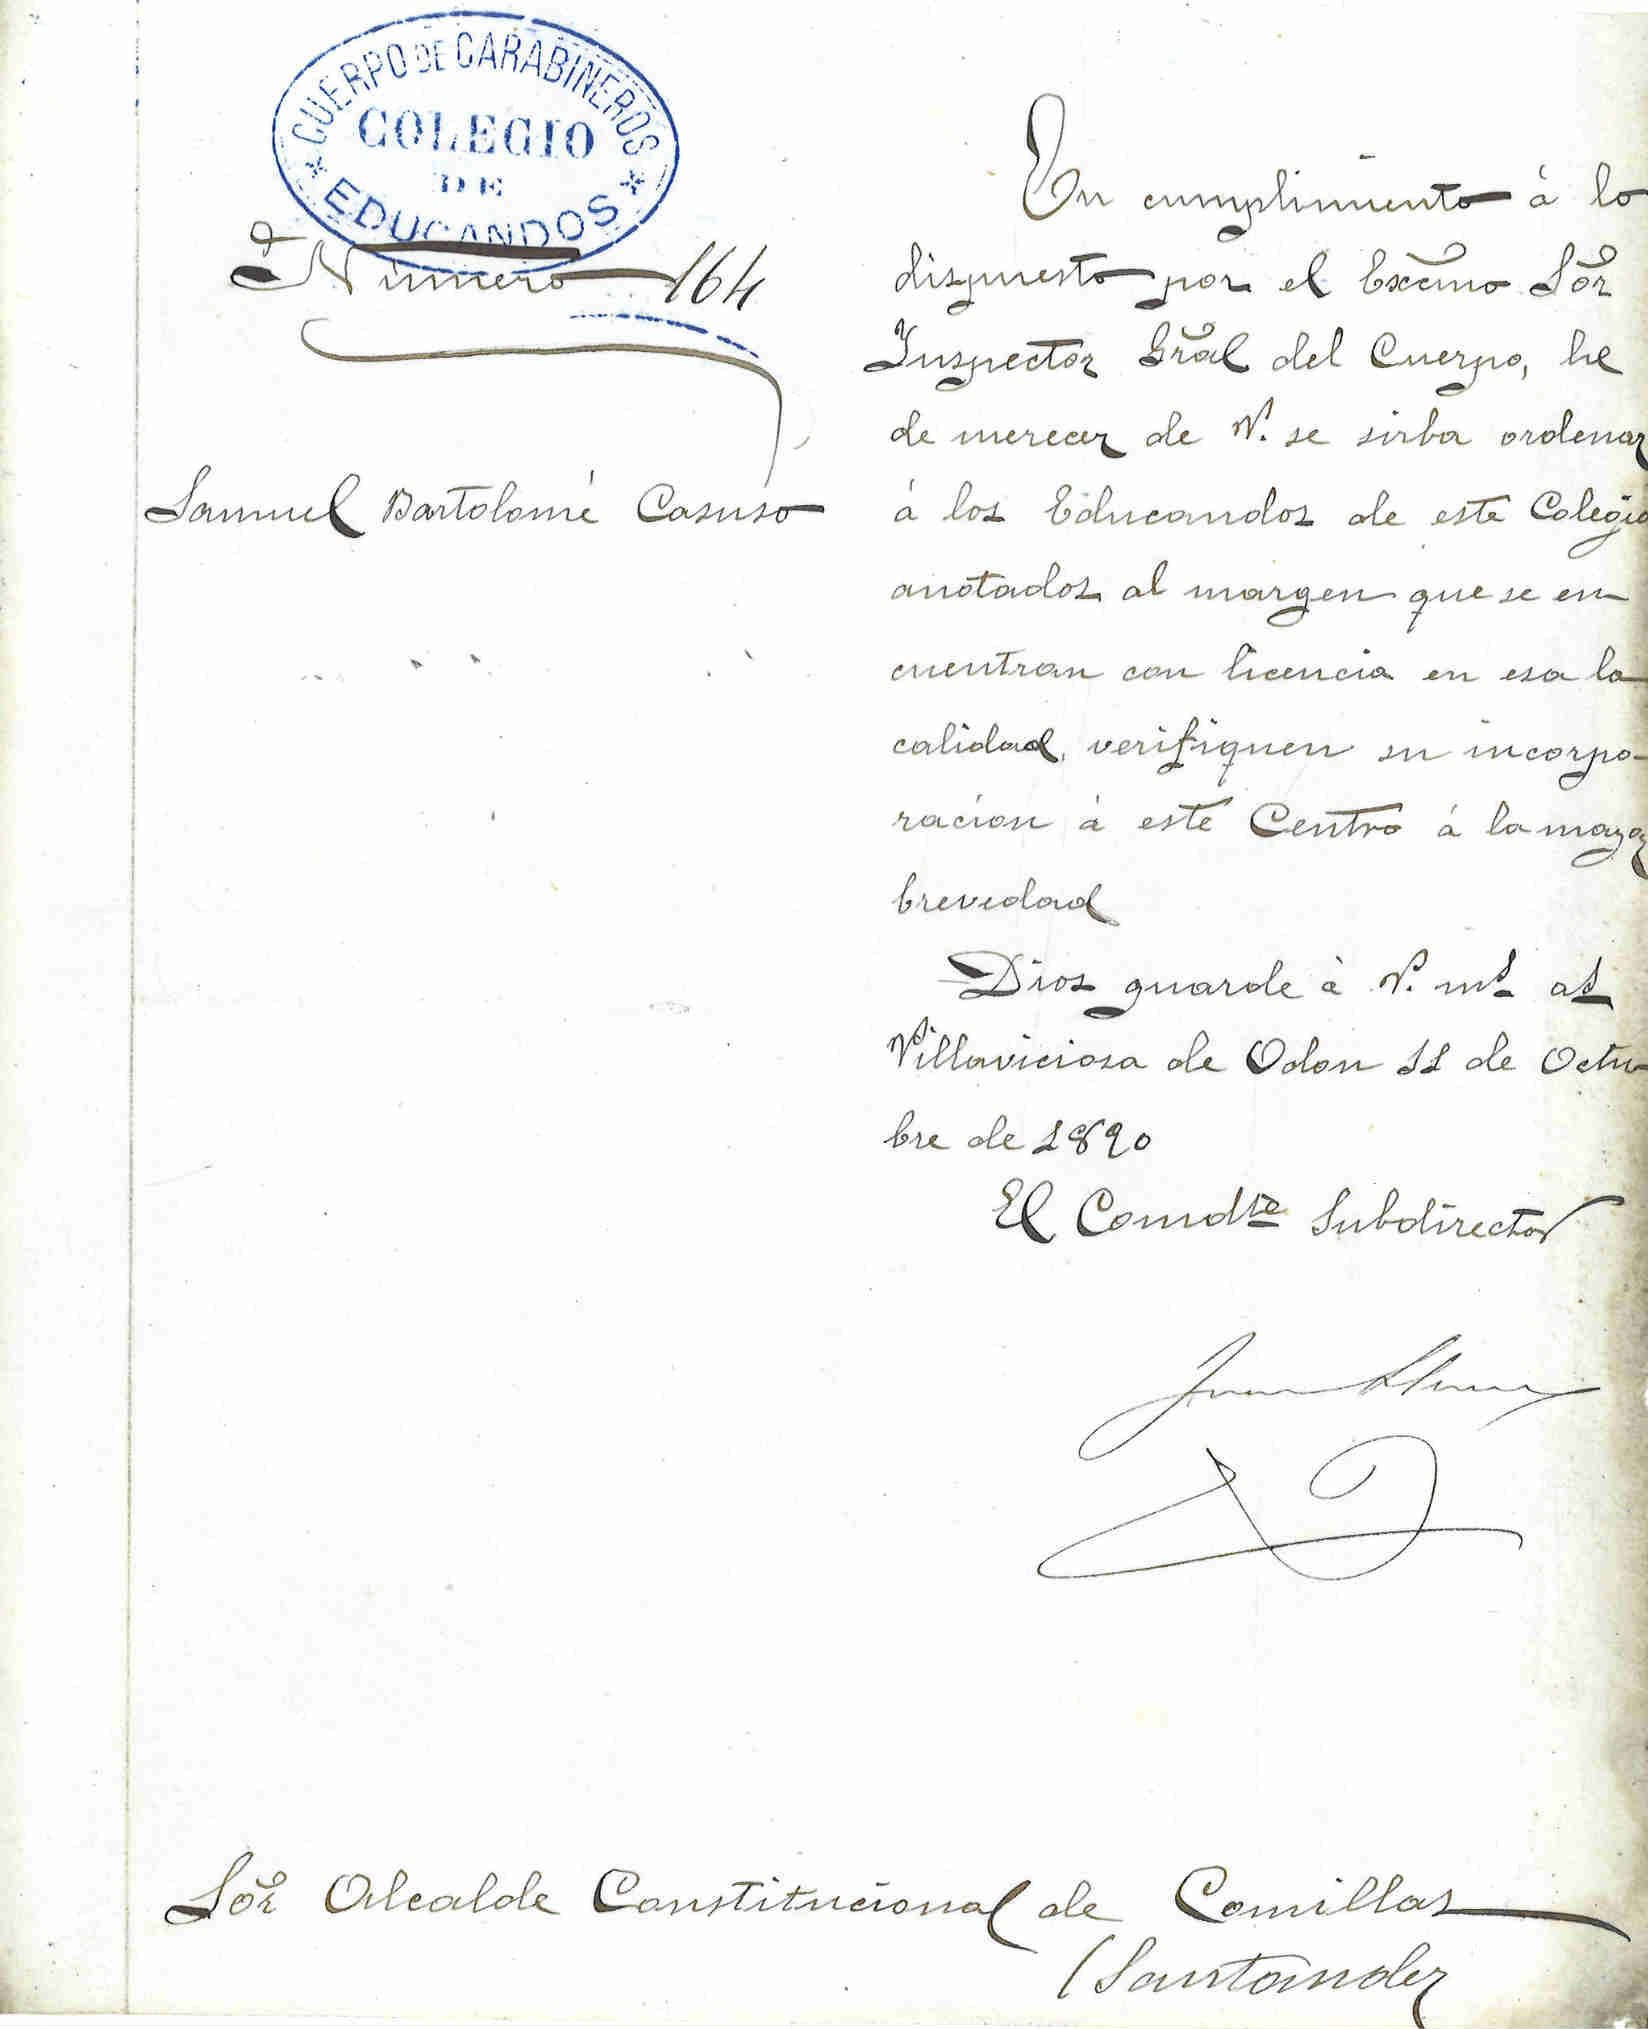 CUERPO DE CARABINEROS
COLEGIO
DE
EDUCANDOS
Número 164
Samuel Bartolomé Casuso
En cumplimiento á lo
dispuesto por el Excmo Sor
Inspector Gral del Cuerpo, he
de merecer de V. se sirba ordenar
á los Educandos de este Colegio
anotados al margen que se en
cuentran con licencia en esa lo
calidad, verifiquen su incorpo-
racion á este Centro á la mayor
brevedad
Dios guarde á V. ms as
Villaviciosa de Odon 11 de Octu-
bre de 1890
El Comdte Subdirector
Juan
Sor Alcalde Constitucional de Comillas
(Santander